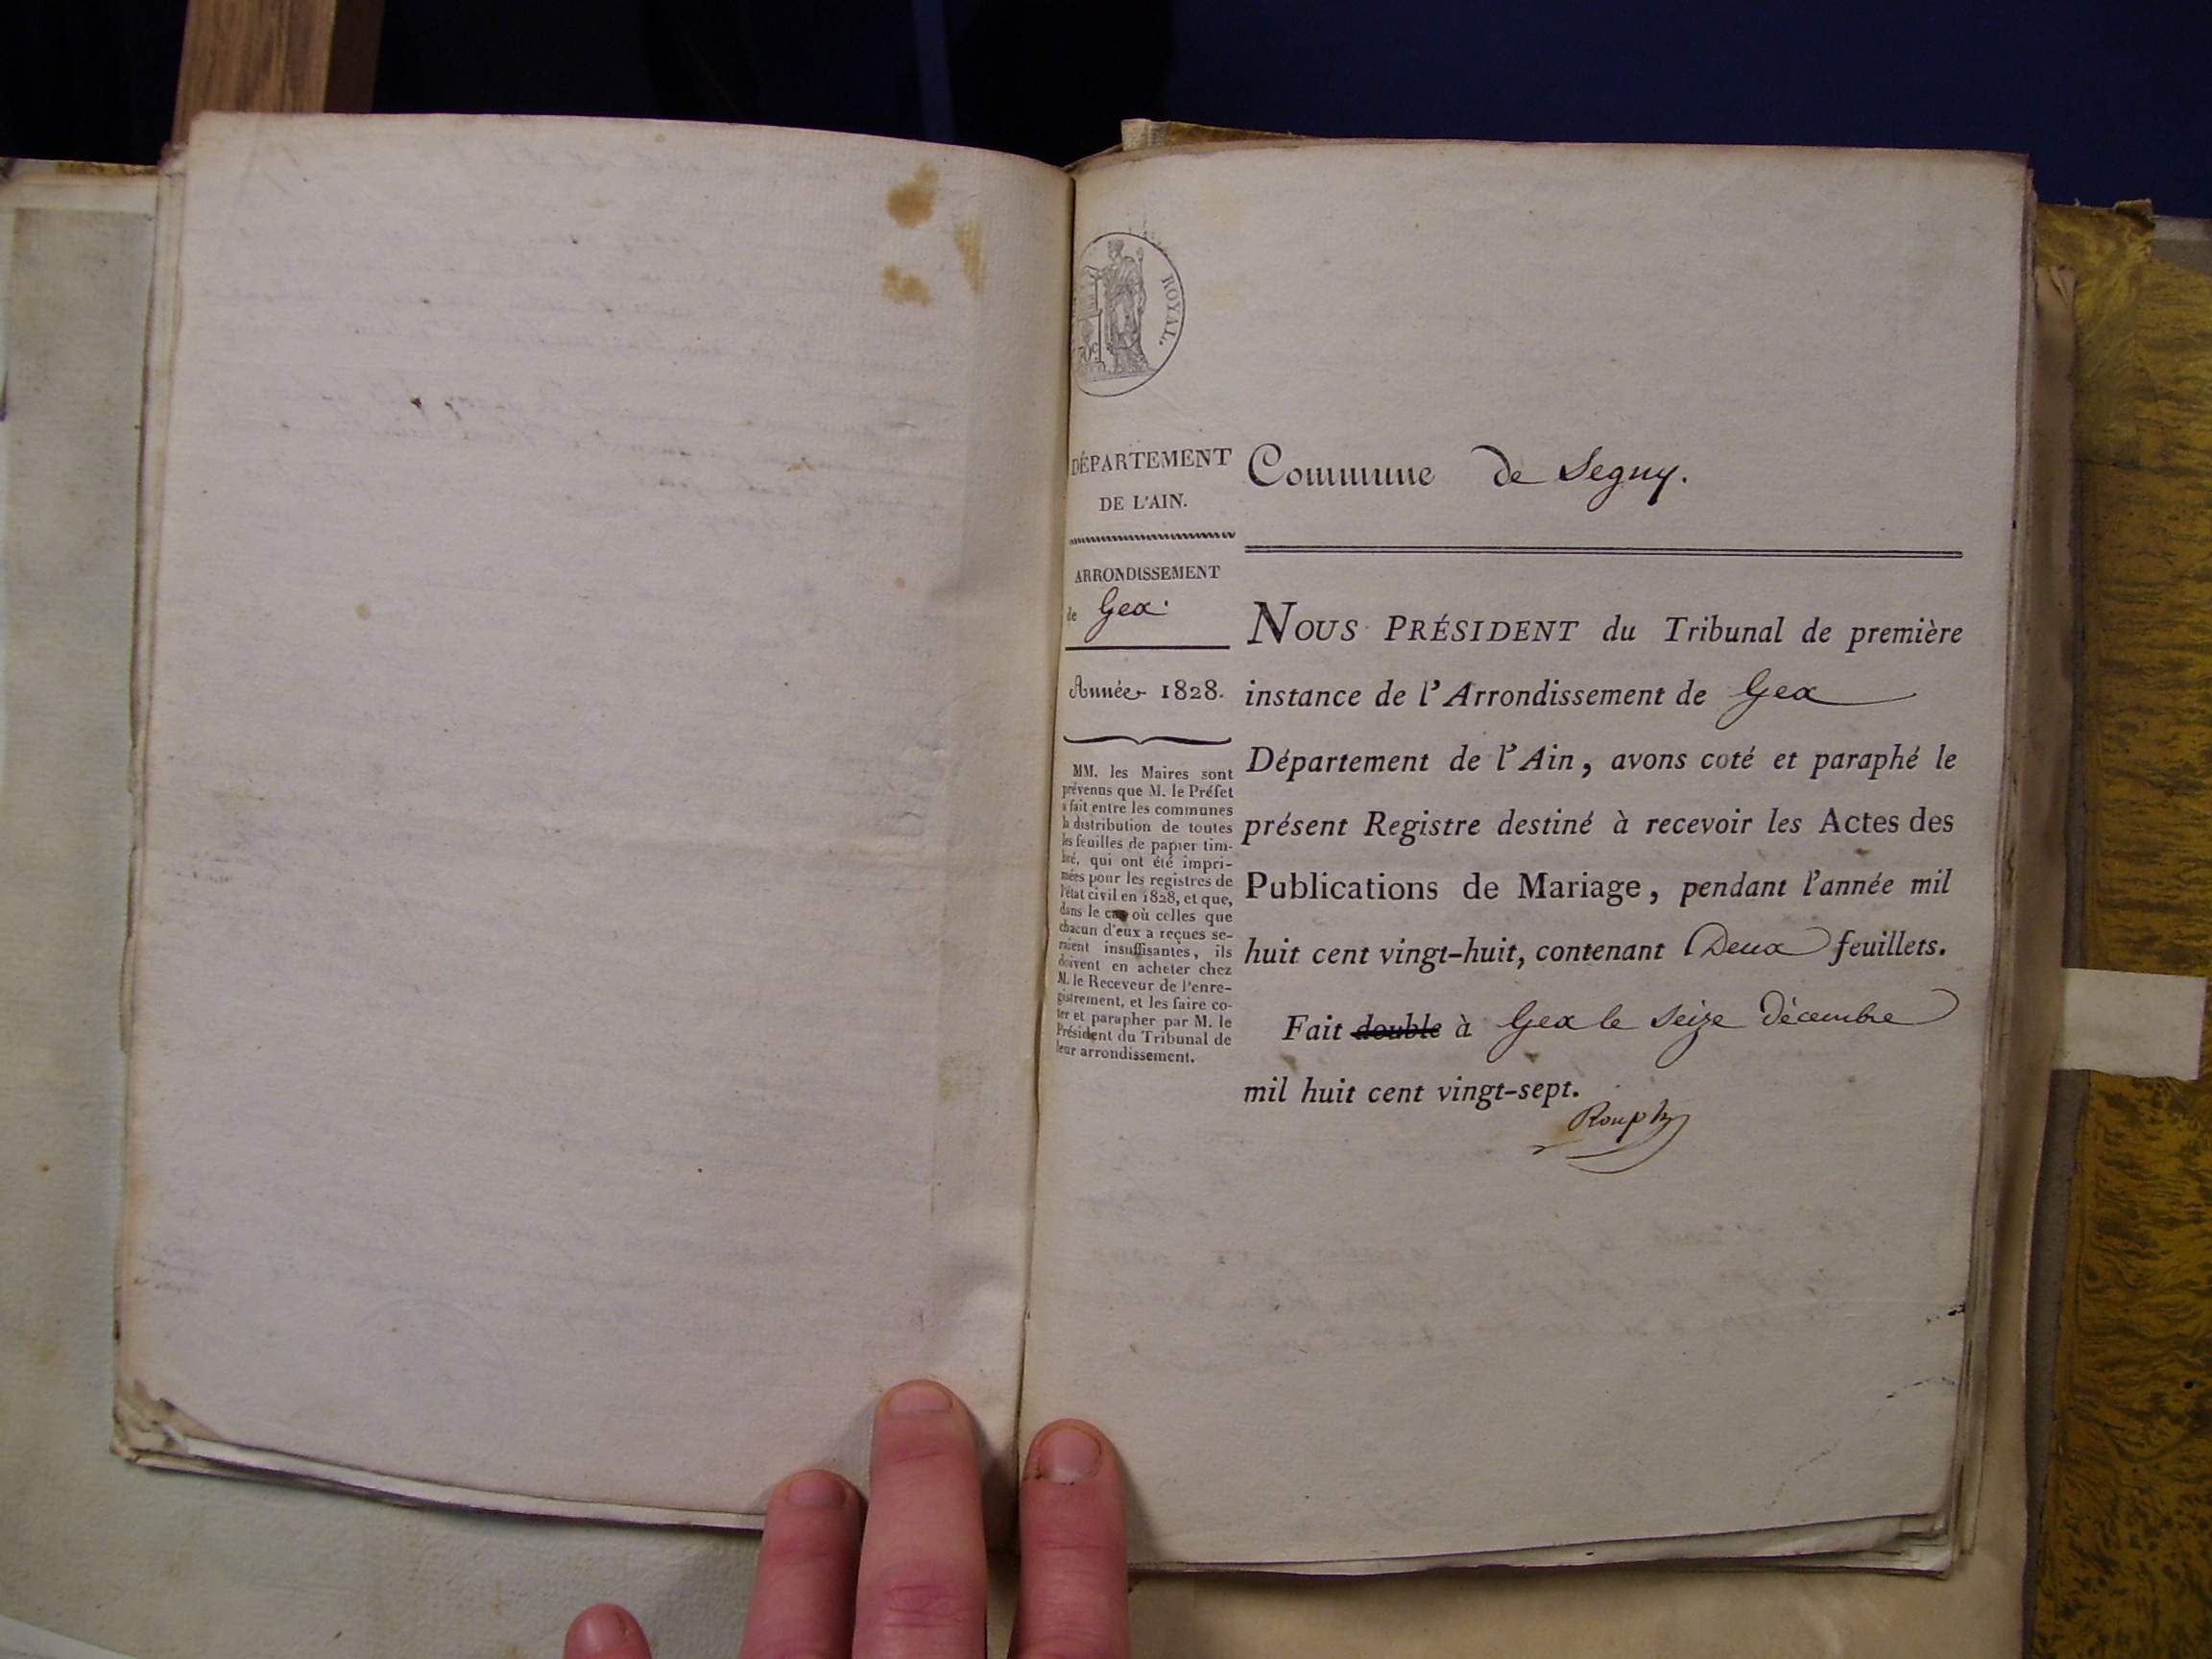 ROYAL.
70c.
DÉPARTEMENT
DE L'AIN.
ARRONDISSEMENT
de Gex.
Année 1828.
MM. les Maires sont
prévenus que M. le Préfet
a fait entre les communes
la distribution de toutes
les feuilles de papier tim-
bré, qui ont été impri-
mées pour les registres de
l'état civil en 1828, et que,
dans le cas où celles que
chacun d'eux a reçues se-
raient insuffisantes, ils
doivent en acheter chez
M. le Receveur de l'enre-
gistrement, et les faire co-
ter et parapher par M. le
Président du Tribunal de
leur arrondissement.
Commune de Segny.
NOUS PRÉSIDENT du Tribunal de première
instance de l'Arrondissement de Gex
Département de l'Ain, avons coté et paraphé le
présent Registre destiné à recevoir les Actes des
Publications de Mariage, pendant l'année mil
huit cent vingt-huit, contenant Deux feuillets.
Fait double à Gex le Seize Décembre
mil huit cent vingt-sept.